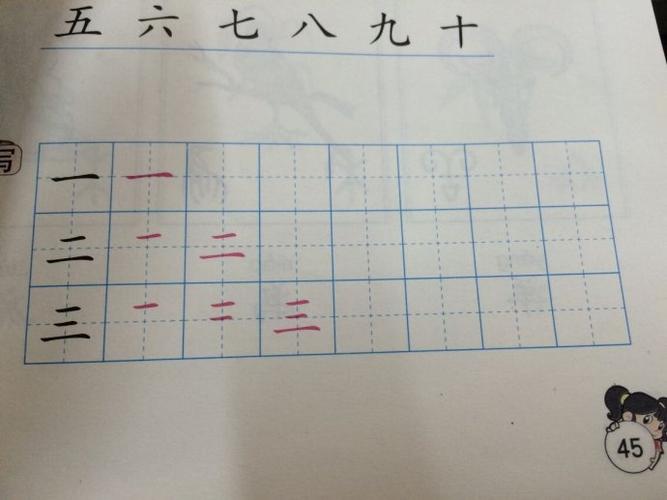 五 六 七 八 九 十
写
一 一
二 一 二
三 一 二 三
45